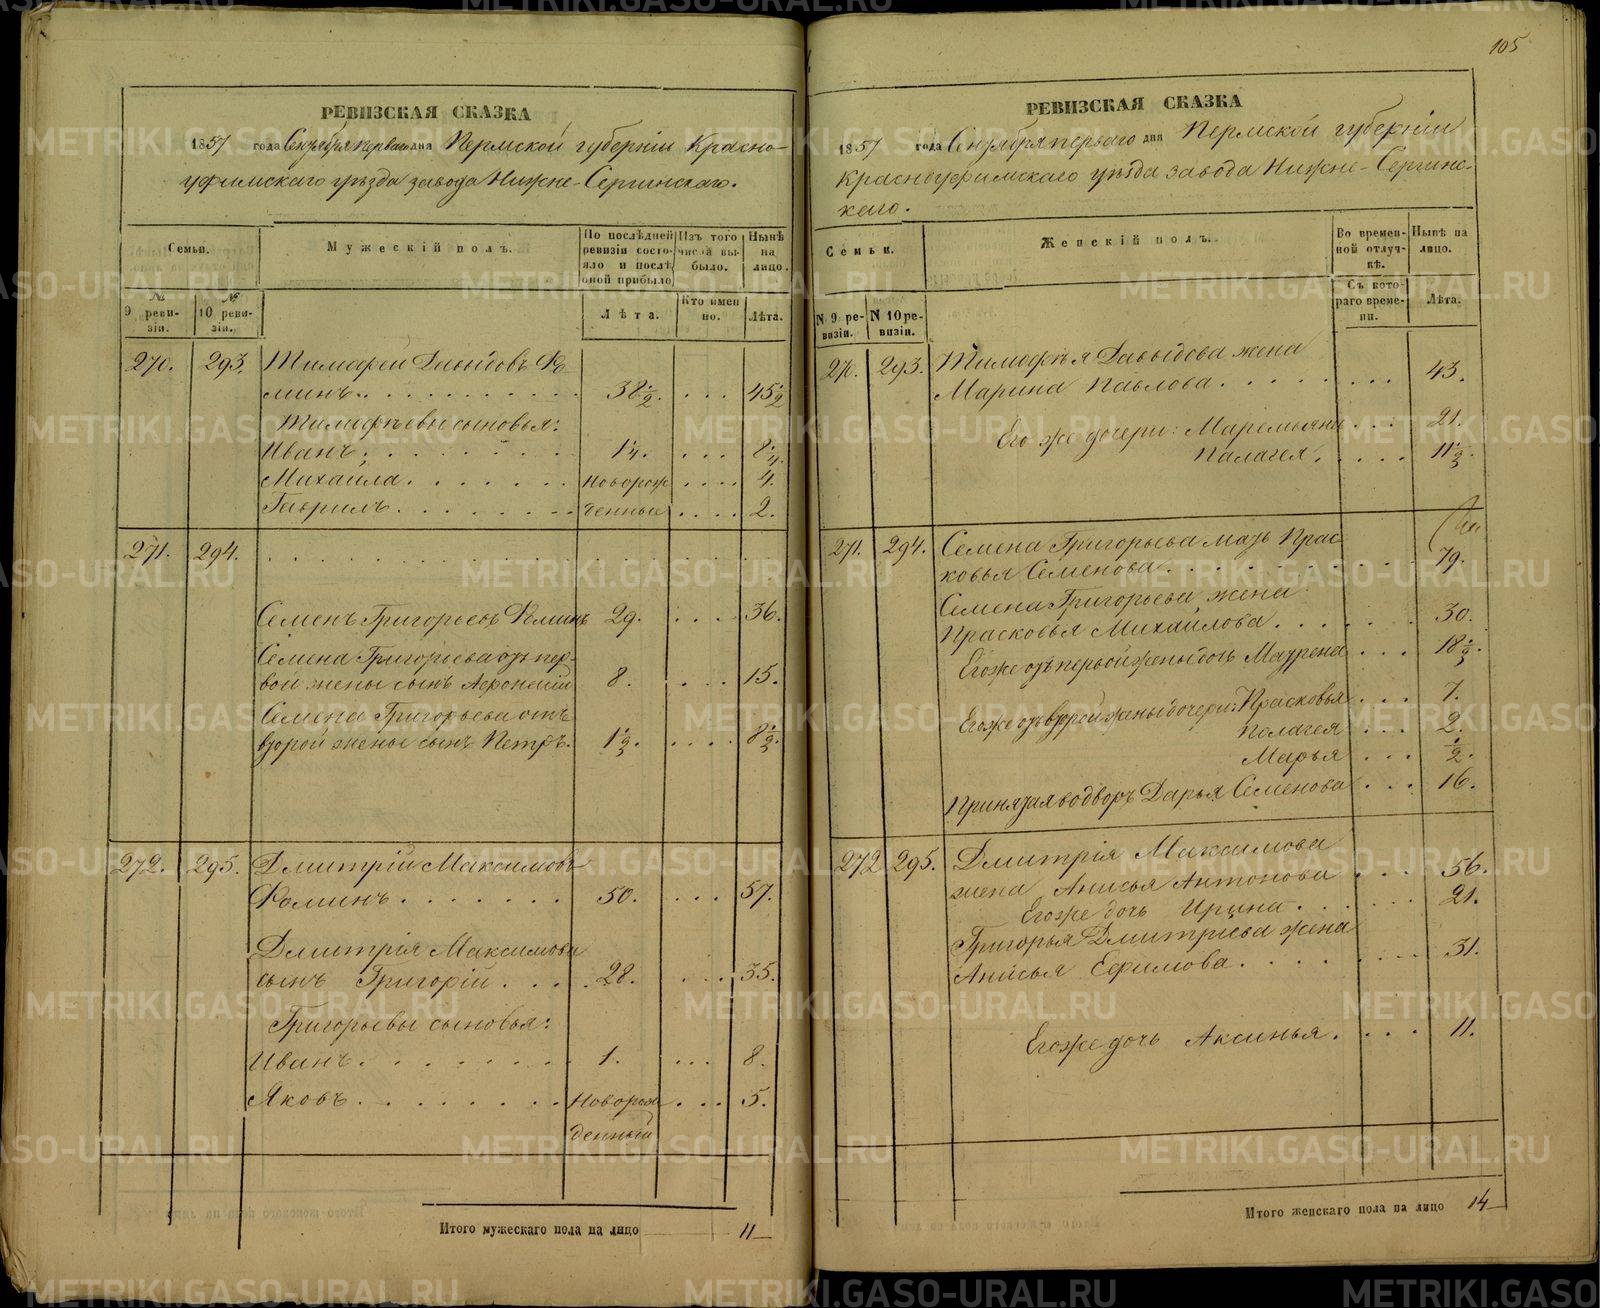 105
РЕВИЗСКАЯ СКАЗКА
1857 года Сентября перваго дня Пермской губерніи Красно-
уфимскаго уѣзда завода Нижне-Сергинскаго.
Семьи.
Мужескій полъ.
По послѣдней ревизіи состояло и послѣ оной прибыло
Изъ того числа выбыло.
Нынѣ на лицо.
№ 9 реви-зіи.
№ 10 реви-зіи.
Лѣта.
Кто именно.
Лѣта.
270. 293. Тимофей Давыдовъ Фо
минъ. 38 1/2. 45 1/2
Тимофѣевы сыновья:
Иванъ. 1 1/4. 8 1/4.
Михаила. новорож 4.
Гаврилъ. денные 2.
271. 294.
Семенъ Григорьевъ Фоминъ 29. 36.
Семена Григорьева отъ пер-
вой жены сынъ Афонасій 8. 15.
Семена Григорьева отъ
второй жены сынъ Петръ. 1 1/2. 8 1/2.
272. 295. Дмитрій Максимовъ
Фоминъ. 50. 57.
Дмитрія Максимова
сынъ Григорій. 28. 35.
Григорьевы сыновья:
Иванъ. 1. 8.
Яковъ. Новорож 5.
денный
Итого мужескаго пола на лицо 11
РЕВИЗСКАЯ СКАЗКА
1857 года Сентября перваго дня Пермской губерніи
Красноуфимскаго уѣзда завода Нижне-Сергинс-
каго.
Семьи.
Женскій полъ.
Во времен-ной отлуч-кѣ.
Нынѣ на лицо.
N 9 ре-визіи.
N 10 ре-визіи.
Съ кото-раго време-ни.
Лѣта.
270. 293. Тимофѣя Давыдова жена
Марина Павлова. 43.
Его же дочери: Маремьяна 21.
Палагея. 11 1/2.
271. 294. Семена Григорьева мать Прас-
ковья Семенова. 79.
Семена Григорьева жена
Прасковья Михайлова. 30.
Егоже отъ первой жены дочь Маурена 18 1/2.
Егоже отъ второй жены дочери: Прасковья 7.
Полагея 2.
Марья 1/2.
Принятая во дворъ Дарья Семенова 16.
272 295. Дмитрія Максимова
жена Анисья Антонова 56.
Егоже дочь Ирина. 21.
Григорья Дмитріева жена
Анисья Ефимова. 31.
Егоже дочь Аксинья. 11.
Итого женскаго пола на лицо 14
METRIKI.GASO-URAL.RU